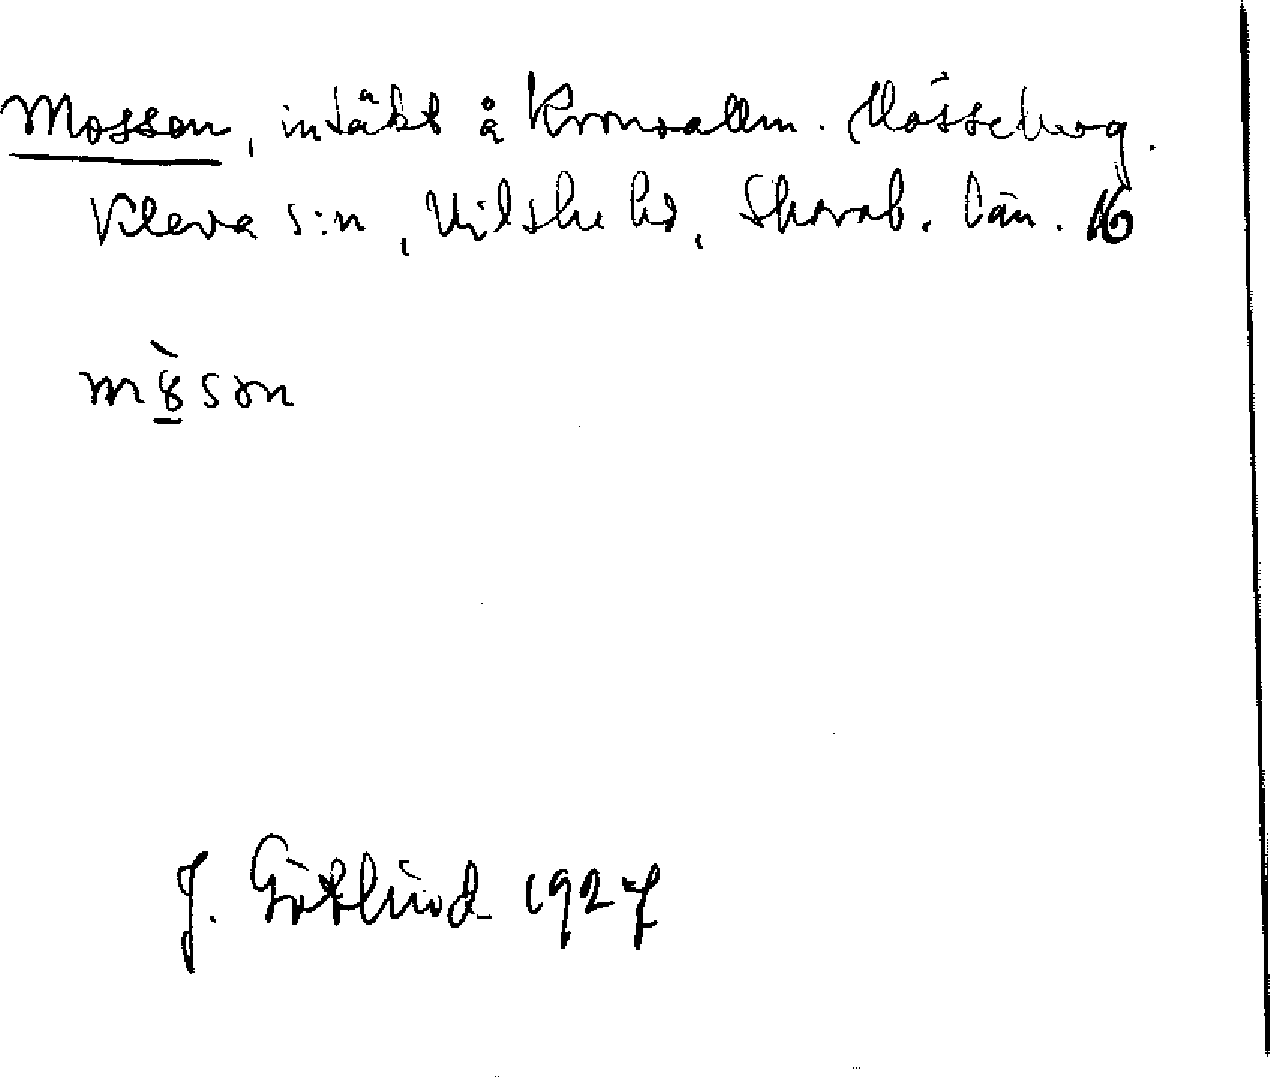 Mossen, intäkt å Kronoallm. Mösseberg.
Kleva s:n, Vilske hd, Skarab. län. 16
J. Götlind 1927